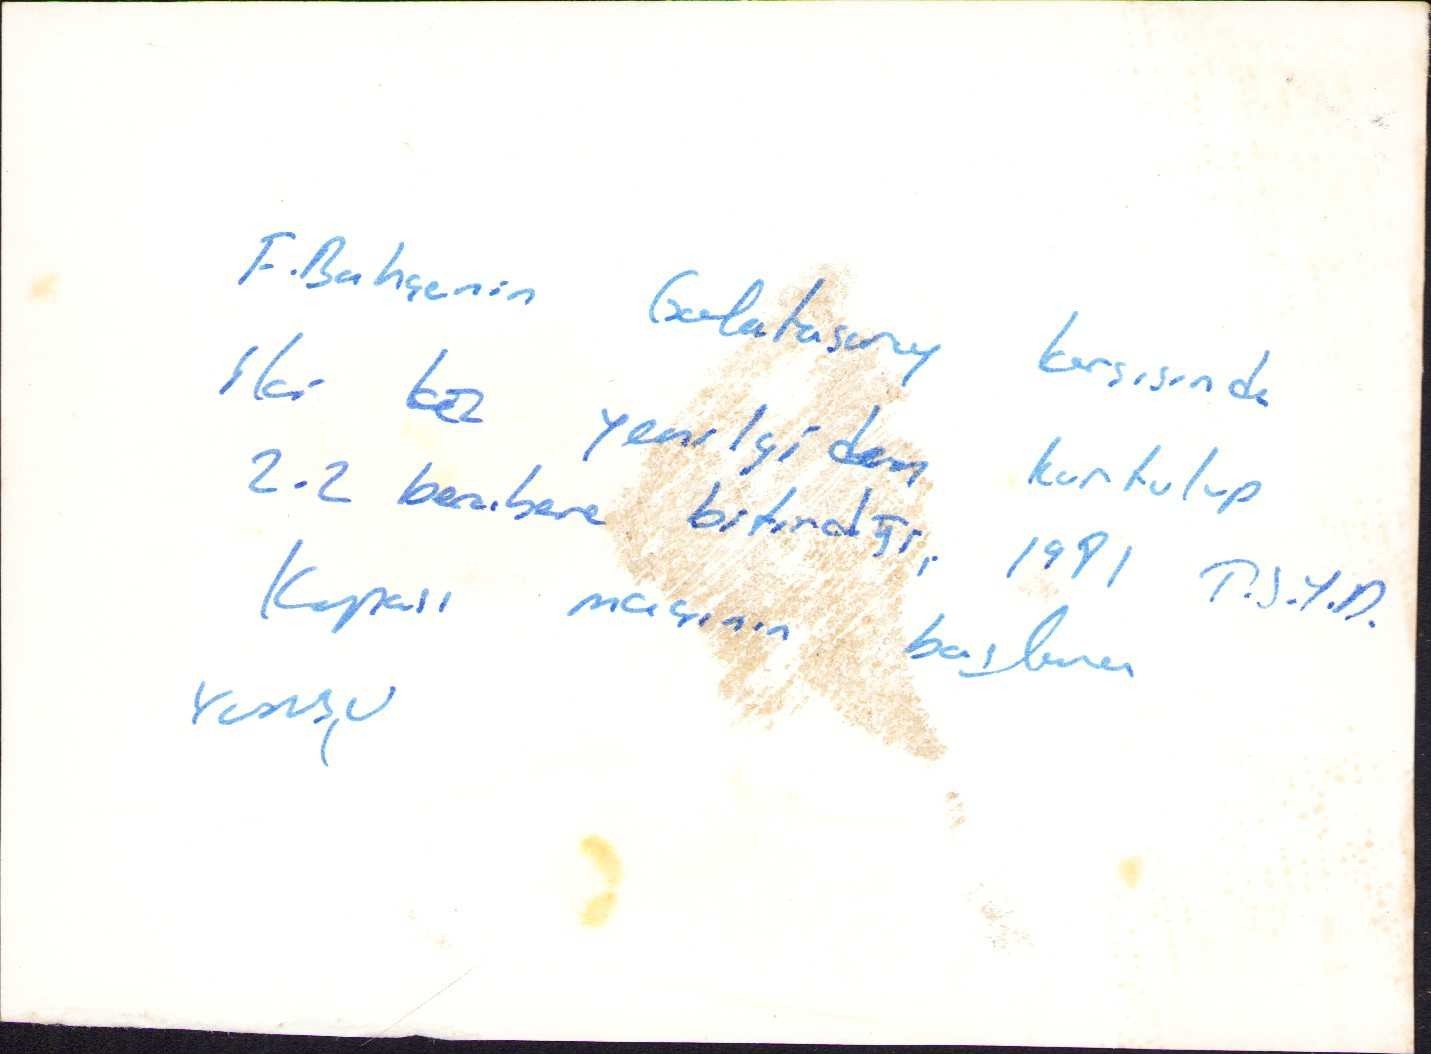 F.Bahçenin Galatasaray karşısında
iki kez yenilgiden kurtulup
2-2 berabere bitirdiği, 1981 T.S.Y.D.
Kupası maçının başlama
vuruşu